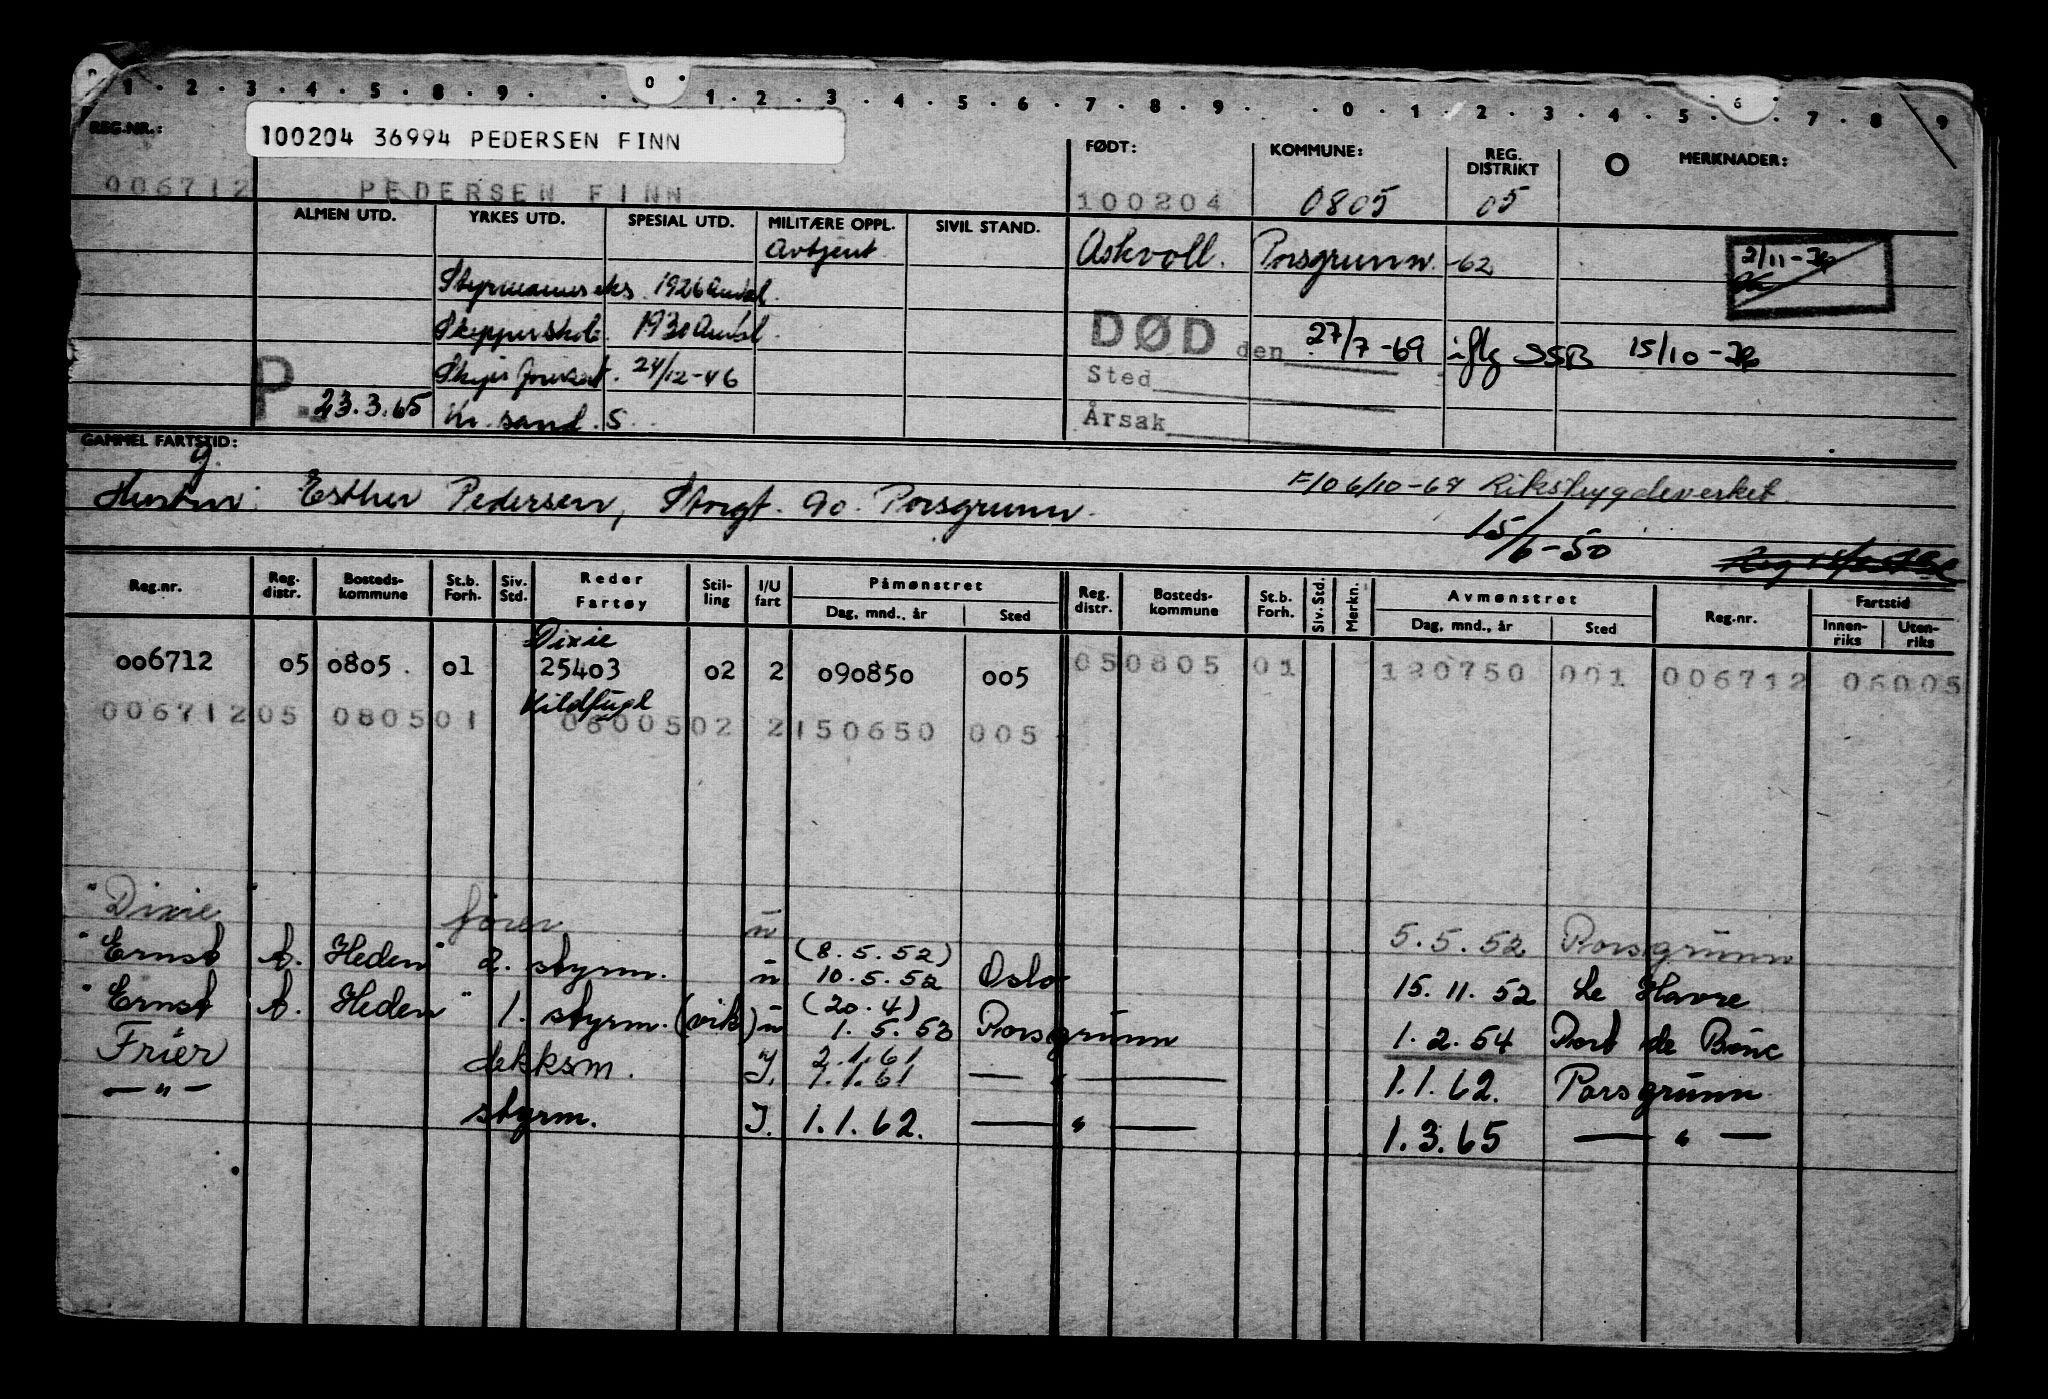 1 . 2 . 3 . 4 . 5 . 8 . 9 . . 0 . 1 . 2 . 3 . 4 . 5 . 6 . 7 . 8 . 9 . . 0 . 1 . 2 . 3 . 4 . 5 . 6 . 7 . 8 . 9
REG.NR.: 100204 36994 PEDERSEN FINN FØDT: KOMMUNE: REG. DISTRIKT O MERKNADER:
006712 PEDERSEN FINN 100204 0805 05
ALMEN UTD. YRKES UTD. SPESIAL UTD. MILITÆRE OPPL. SIVIL STAND.
Avtjent Askvoll. Porsgrunn -62 2/11-
Styrmannseks. 1926
1930 DØD den 27/7-69 iflg SSB 15/10-
24/12-46 Sted
P. 23.3.65 Kr.sand.S. Årsak
GAMMEL FARTSTID:
Hustru: Esther Pedersen, Storgt. 90. Porsgrunn. 6/10-69 Rikstrygdeverket.
15/6-50
Reg.nr. Reg. distr. Bosteds- kommune St.b. Forh. Siv. Std. Reder Fartøy Stil- ling I/U fart Påmønstret Dag, mnd., år Sted Reg. distr. Bosteds- kommune St.b. Forh. Siv. Std. Merkn. Avmønstret Dag, mnd., år Sted Reg.nr. Fartstid Innen- riks Uten- riks
Dixie
006712 05 0805. 01 25403 02 2 090850 005 05 0805 01 120750 001 006712 06005
Kildfugl
006712 05 0805 01 06005 02 2 150650 005
"Dixie" fører u 5.5.52 Porsgrunn
(8.5.52)
"Ernst A. Heden" 2. styrm. u 10.5.52 Oslo 15.11.52 Le Havre
(20.4)
"Ernst A. Heden" 1. styrm. (vik) u 1.5.53 Porsgrunn 1.2.54 Port de Bouc
2.1.61
Frier dekksm. I. 1.1.61 — " — 1.1.62. Porsgrunn
— " — styrm. I. 1.1.62. — " — 1.3.65 — " —